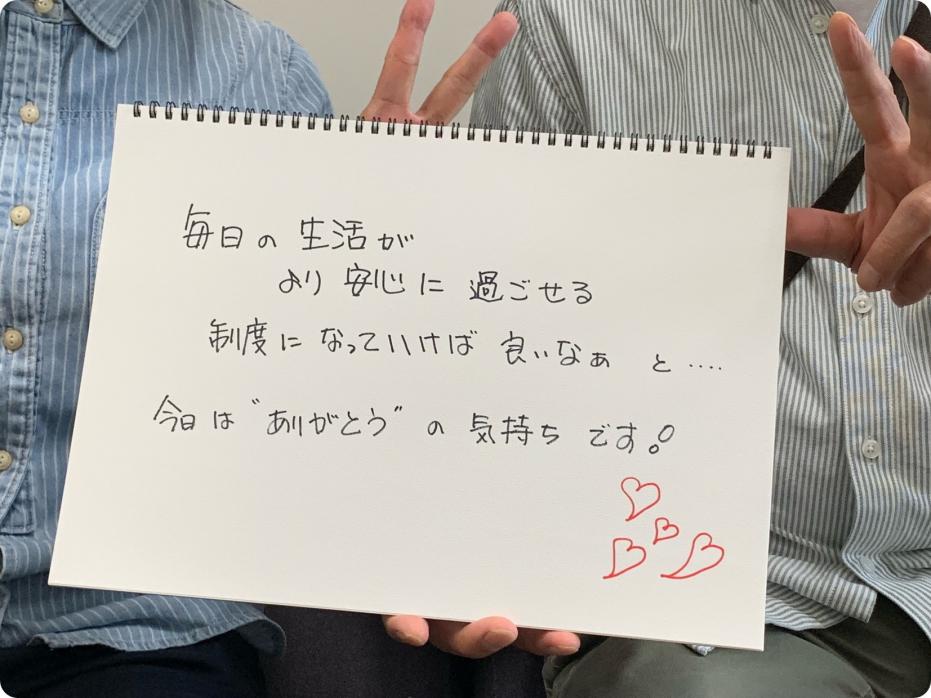 毎日の生活が
より安心に過ごせる
制度になっていけば良いなぁと‥‥
今日は"ありがとう"の気持ちです!